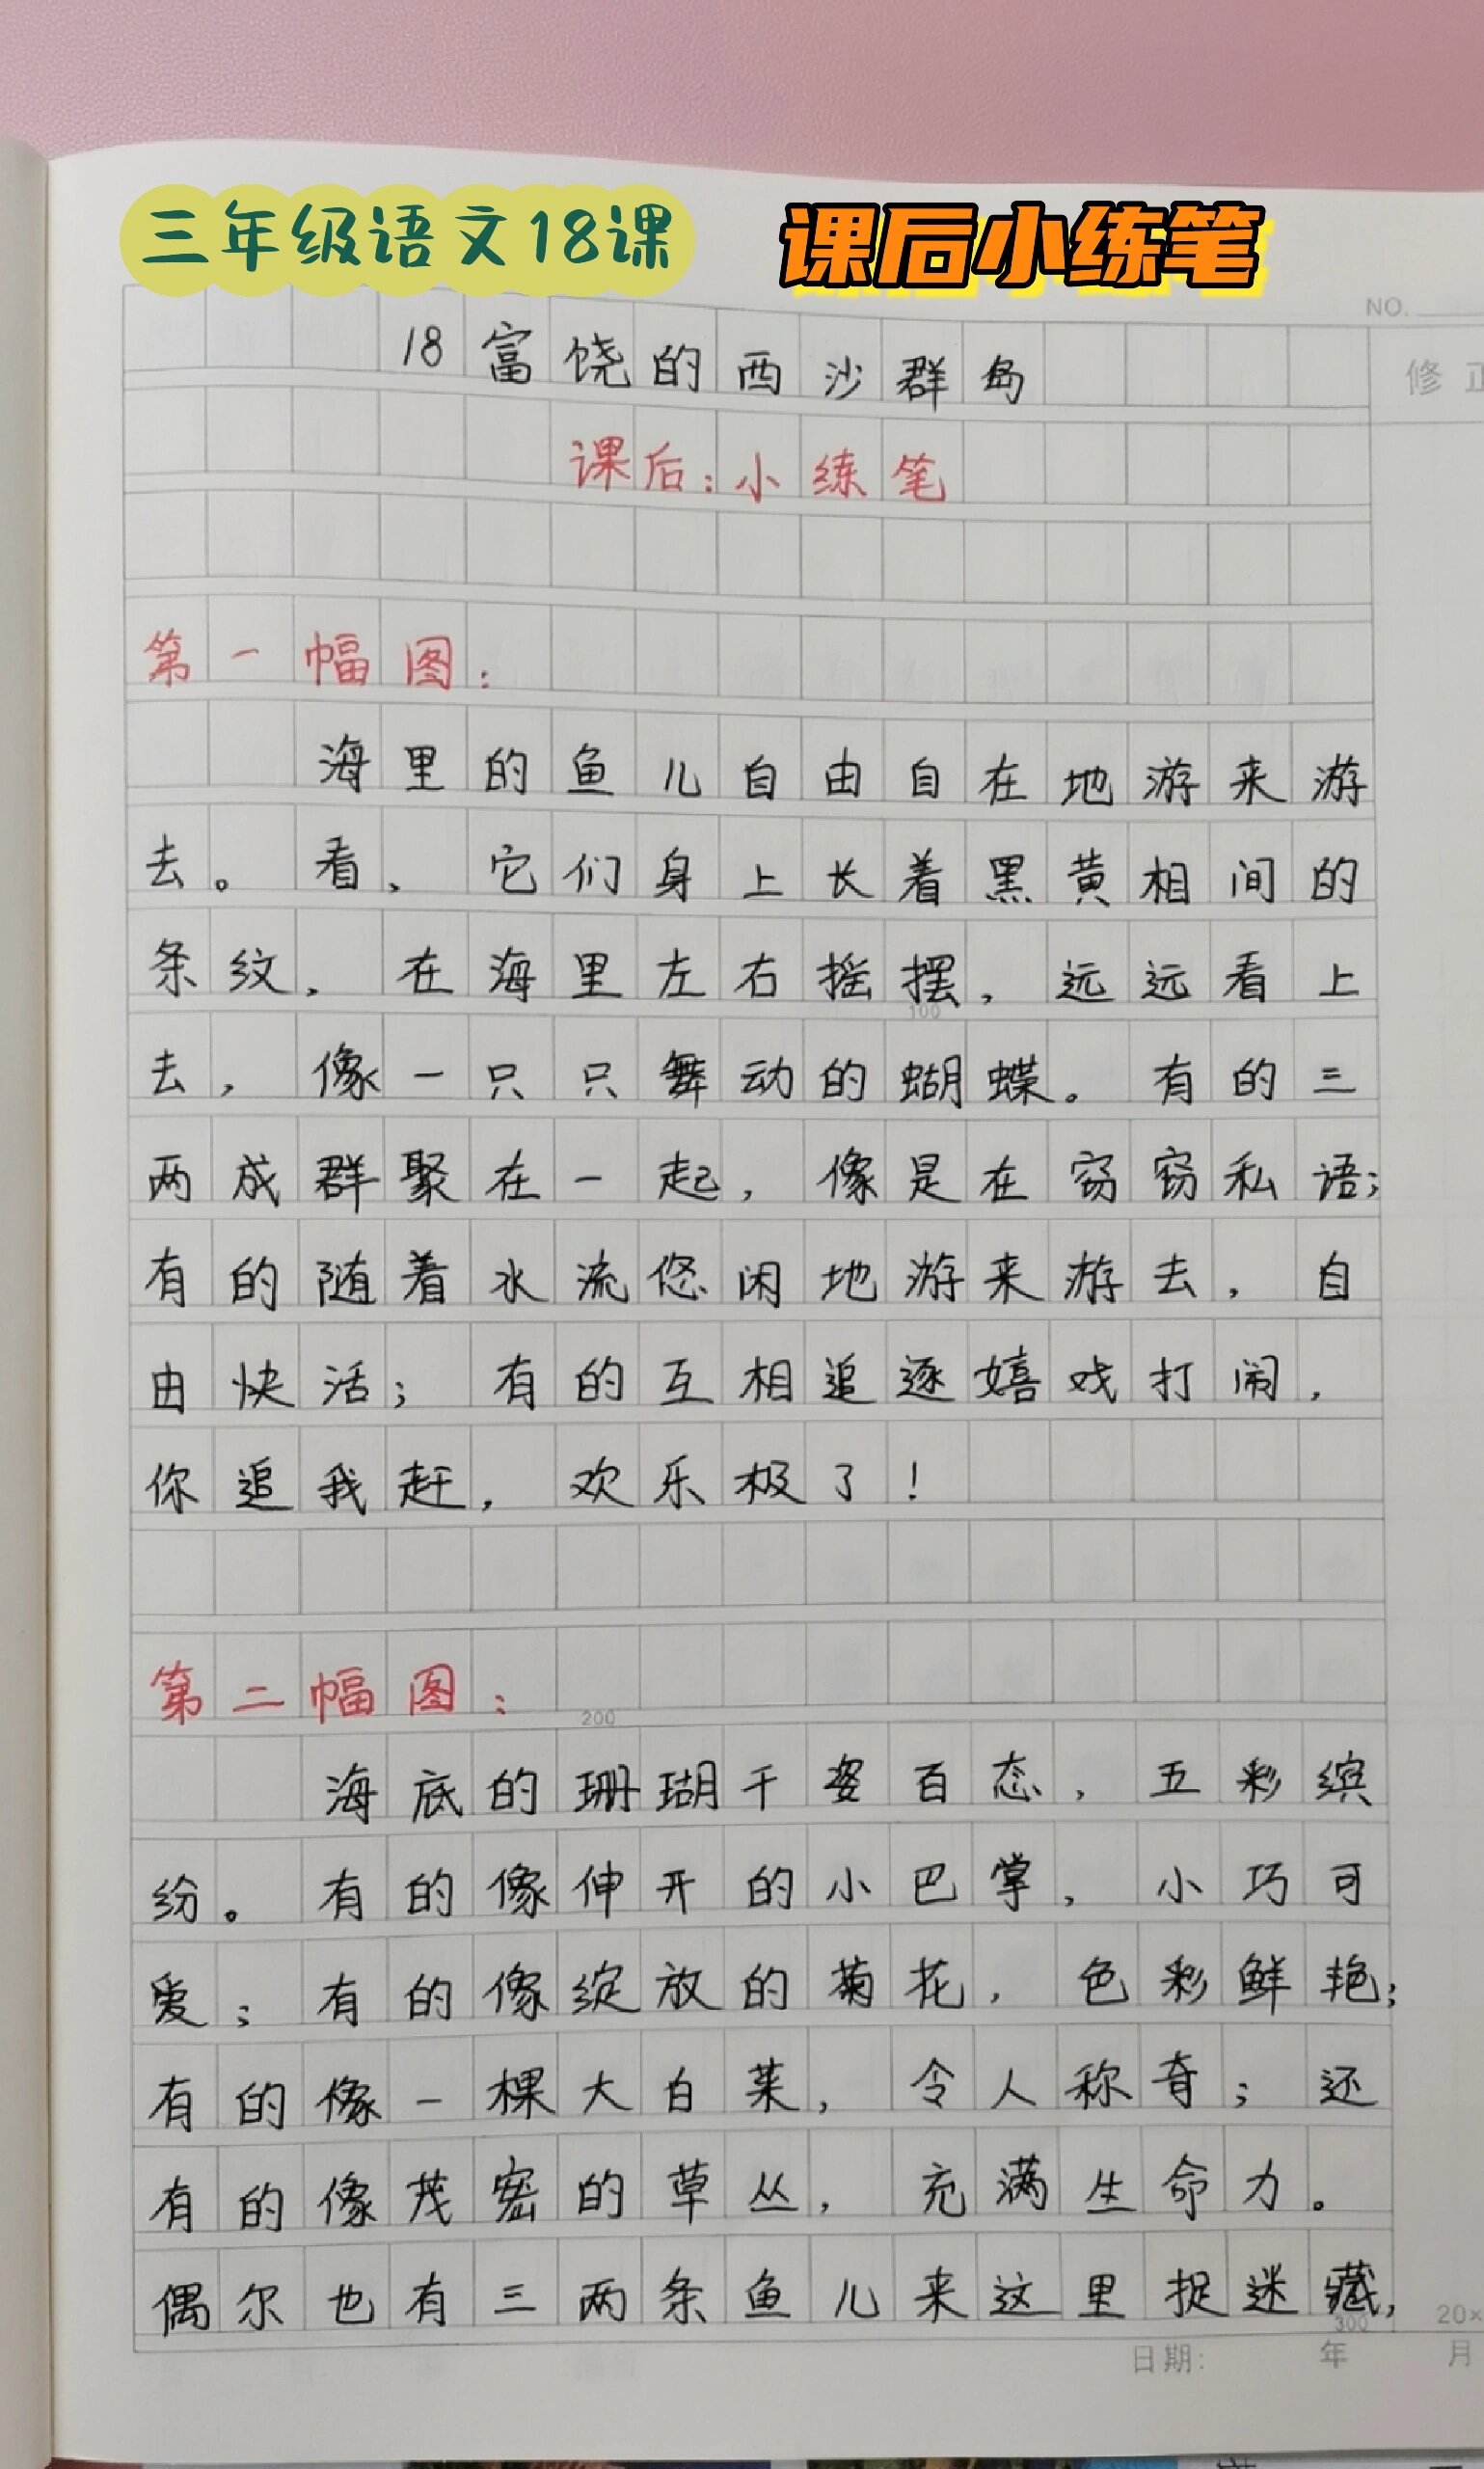 三年级语文18课 课后小练笔
NO.
18富饶的西沙群岛
修正
课后:小练笔
第一幅图:
海里的鱼儿自由自在地游来游
去。看,它们身上长着黑黄相间的
条纹,在海里左右摇摆,远远看上
100
去,像一只只舞动的蝴蝶。有的三
两成群聚在一起,像是在窃窃私语;
有的随着水流悠闲地游来游去,自
由快活;有的互相追逐嬉戏打闹,
你追我赶,欢乐极了!
第二幅图:
200
海底的珊瑚千姿百态,五彩缤
纷。有的像伸开的小巴掌,小巧可
爱;有的像绽放的菊花,色彩鲜艳;
有的像一棵大白菜,令人称奇;还
有的像茂密的草丛,充满生命力。
偶尔也有三两条鱼儿来这里捉迷藏,
300 20×
日期: 年 月